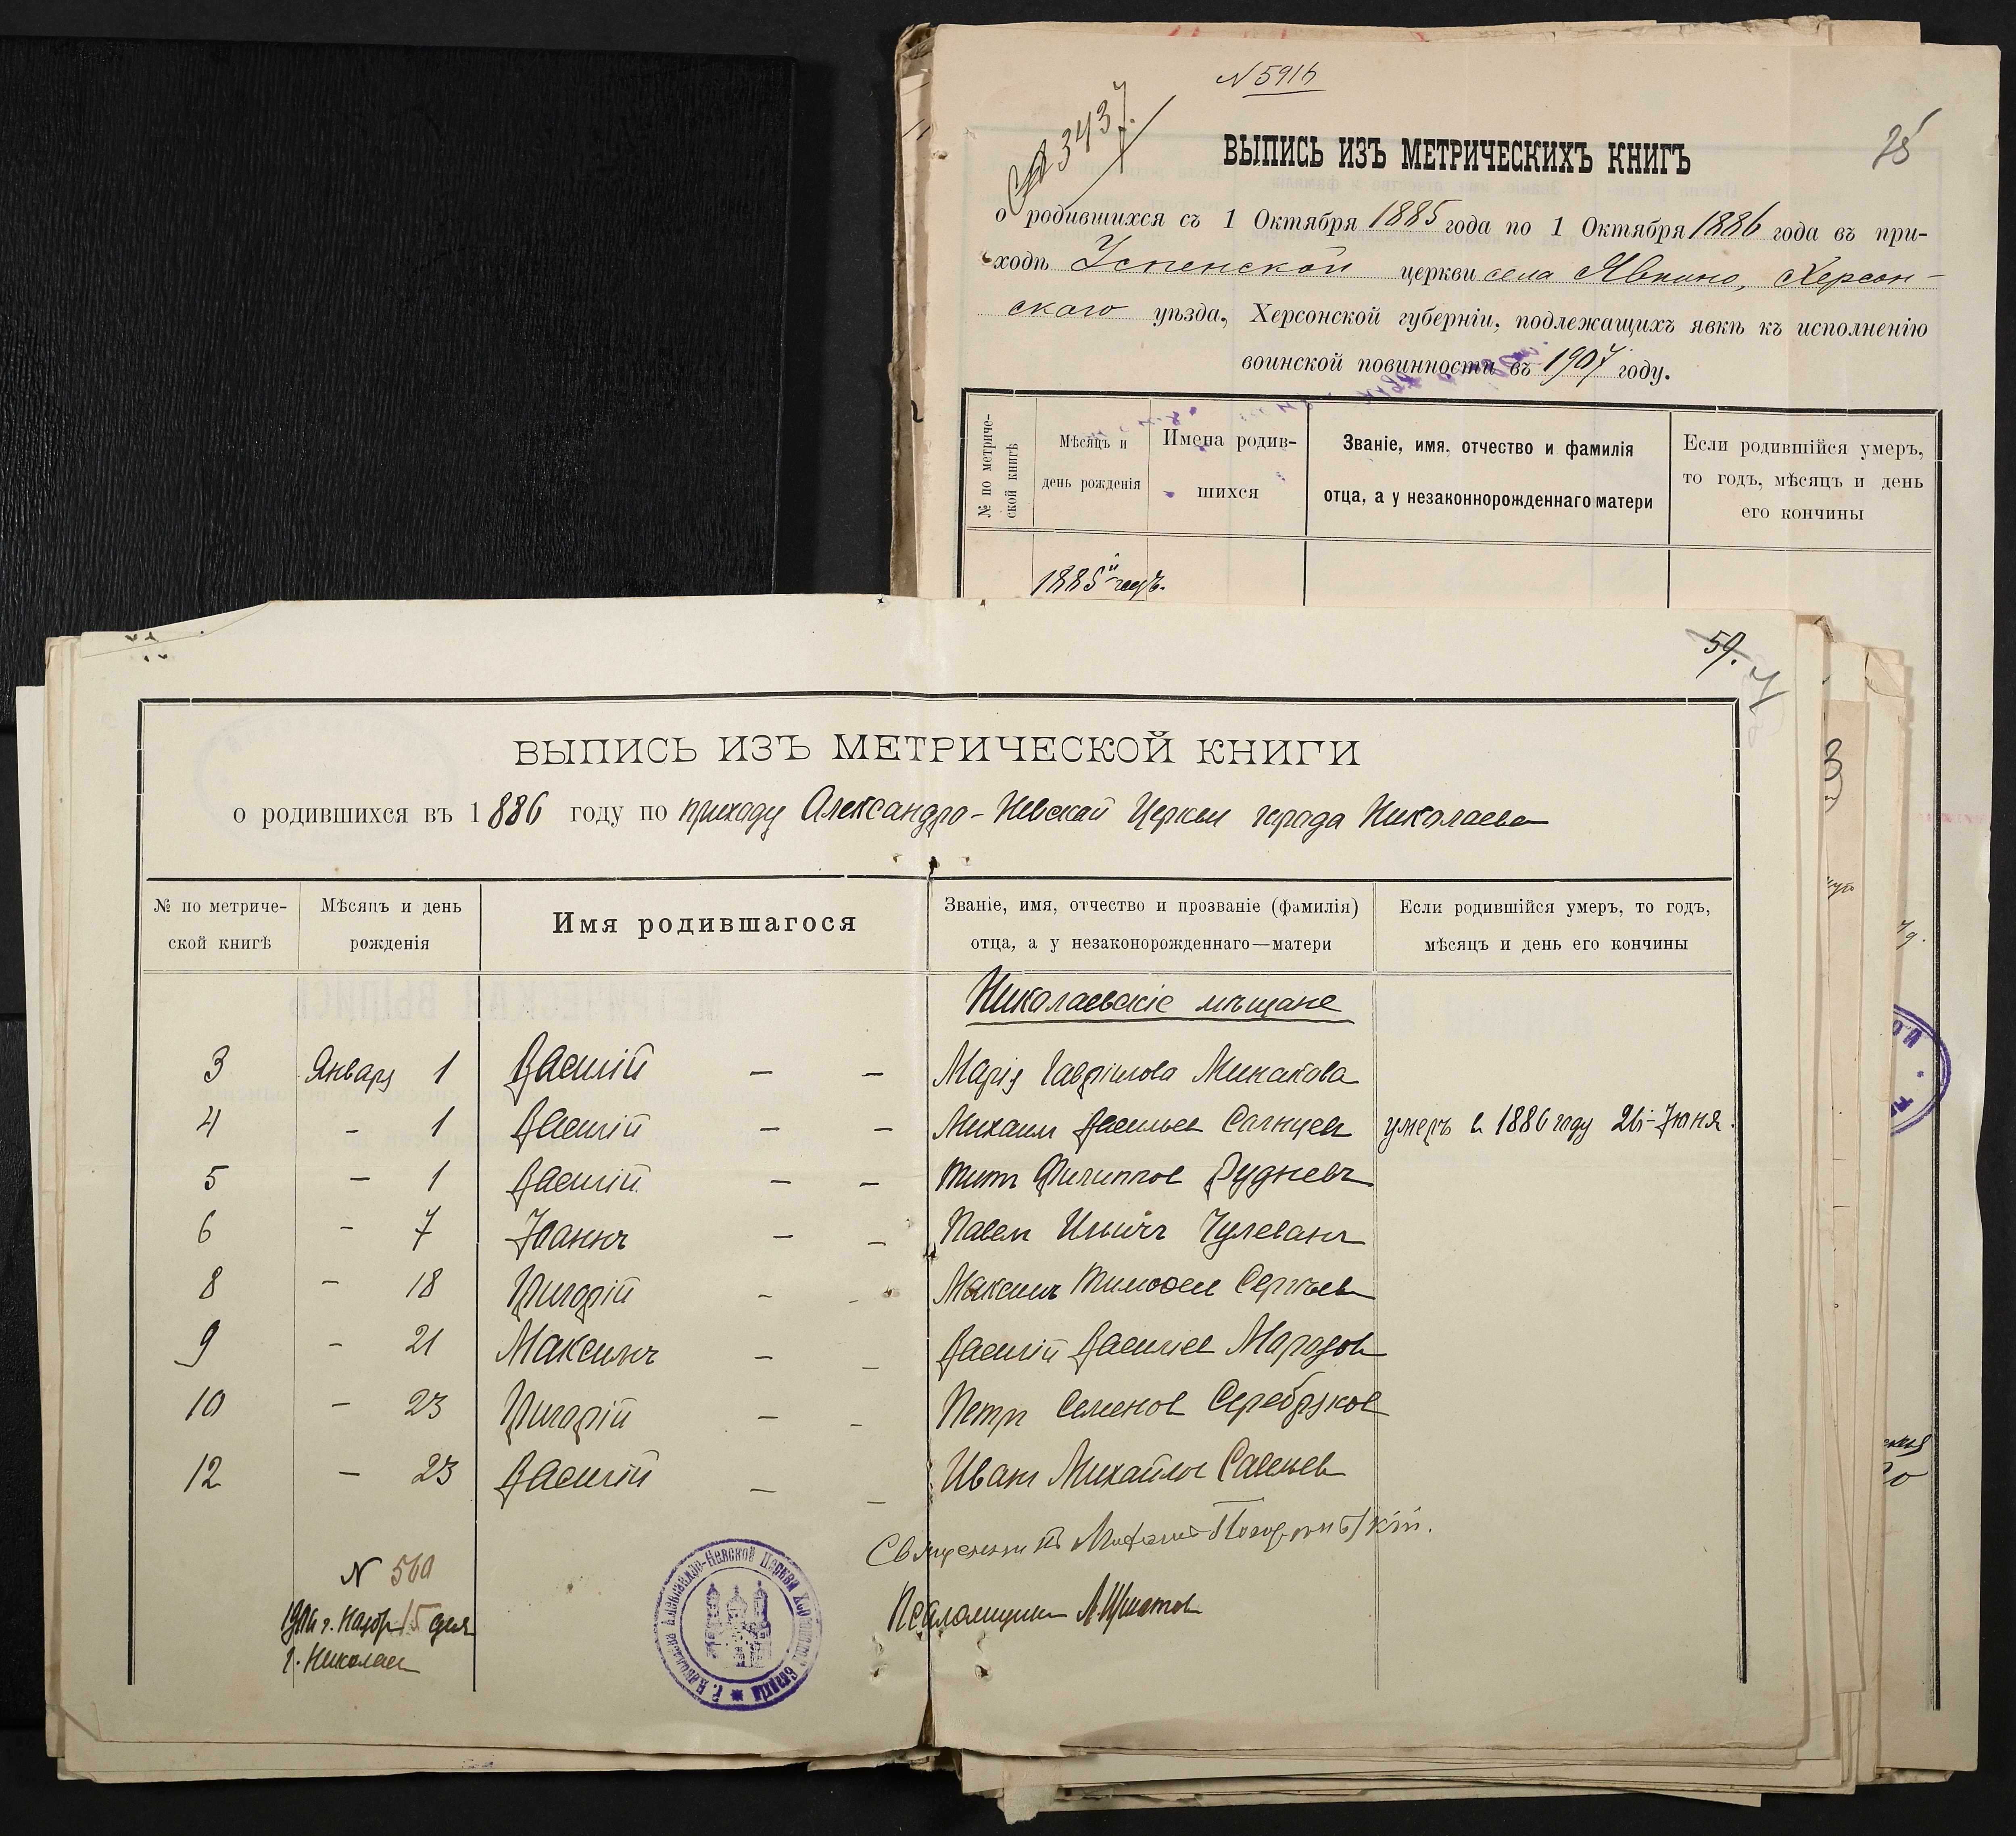 N 5916
№ 3437.
25
ВЫПИСЬ ИЗЪ МЕТРИЧЕСКИХЪ КНИГЪ
о родившихся съ 1 Октября 1885 года по 1 Октября 1886 года въ при-
ходѣ Успенской церкви села Явкино, Херсон-
скаго уѣзда, Херсонской губерніи, подлежащихъ явкѣ къ исполненію
воинской повинности въ 1907 году.
№ по метриче-
ской книгѣ
Мѣсяцъ и
день рожденія
Имена родив-
шихся
Званіе, имя, отчество и фамилія
отца, а у незаконнорожденнаго матери
Если родившійся умеръ,
то годъ, мѣсяцъ и день
его кончины
1885й годъ.
59.
ВЫПИСЬ ИЗЪ МЕТРИЧЕСКОЙ КНИГИ
о родившихся въ 1886 году по приходу Александро-Невской Церкви города Николаева
№ по метриче-
ской книгѣ
Мѣсяцъ и день
рожденія
Имя родившагося
Званіе, имя, отчество и прозваніе (фамилія)
отца, а у незаконорожденнаго—матери
Если родившійся умеръ, то годъ,
мѣсяцъ и день его кончины
Николаевскіе мѣщане
3 Января 1 Василій — — Марія Гавріилова Минакова
4 - 1 Василій — — Михаил Васильев Солнцев умеръ в 1886 году 26-Іюня.
5 - 1 Василій — — Титъ Филиппов Рудневъ
6 - 7 Іоаннъ — — Павел Ильичъ Чулеванъ
8 - 18 Григорій - - Максимъ Тимофеев Сергѣев
9 - 21 Максимъ — - Василій Васильев Морозов
10 - 23 Григорій — - Петръ Семенов Серебряков
12 - 23 Василій — — Иванъ Михайлов Савельев
Священникъ
N 560
Псаломщикъ
1906 г. Ноябр 15 дня
г. Николаев
Г. Николаева Александро-Невской Церкви Херсонской Епархіи